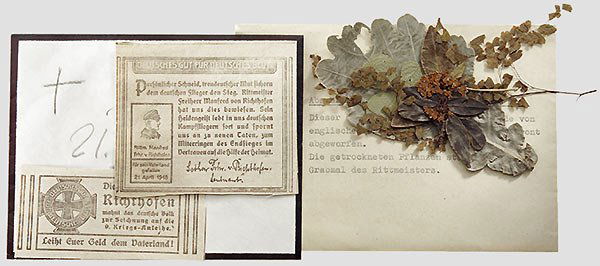 +
21.
DEUTSCHES GUT FÜR DEUTSCHES BLUT
Persönlicher Schneid, treudeutscher Mut sichern
dem deutschen Flieger den Sieg. Rittmeister
Freiherr Manfred von Richthofen
hat uns dies bewiesen. Sein
Heldengeist lebt in uns deutschen
Kampffliegern fort und spornt
uns an zu neuen Taten, zum
Miterringen des Endsieges im
Vertrauen auf die Hilfe der Heimat.
Rittm. Manfred
Frhr v. Richthofen
für sein Vaterland
gefallen
21. April 1918
Lothar Frhr. v. Richthofen
Leutnant
Die
Richthofen
mahnt das deutsche Volk
zur Zeichnung auf die
9. Kriegs-Anleihe.
Leiht Euer Geld dem Vaterland!
Dieser
von
englische
abgeworfen.
Die getrockneten Pflanzen
Grabmal des Rittmeisters.